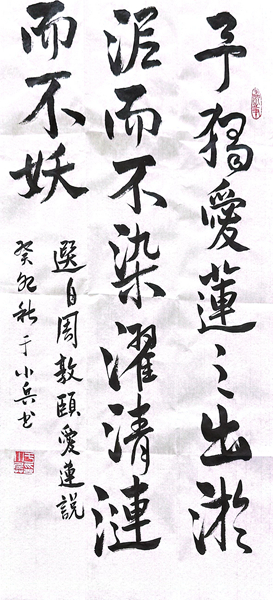 予獨愛蓮之出淤
泥而不染濯清漣
而不妖
選自周敦頤愛蓮説
癸卯秋于小兵书